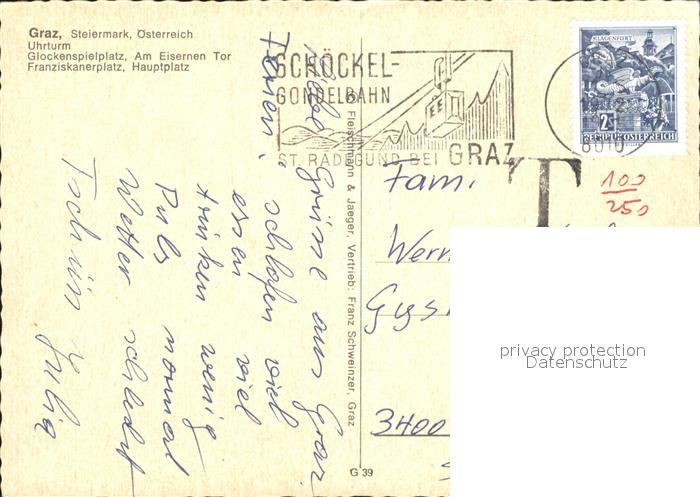 Graz, Steiermark, Österreich
Uhrturm
Glockenspielplatz, Am Eisernen Tor
Franziskanerplatz, Hauptplatz
SCHÖCKEL-
GONDELBAHN
ST. RADEGUND BEI GRAZ
KLAGENFURT
2
REPUBLIK ÖSTERREICH
8010
T
100
250
Grüsse aus Graz
Ferien: schlafen viel
essen viel
trinken wenig
Puls normal
Wetter schlecht
Tschüss
Fleischmann & Jaeger, Vertrieb: Franz Schweinzer, Graz
G 39
Fam.
Wern
Gys
3400
privacy protection
Datenschutz